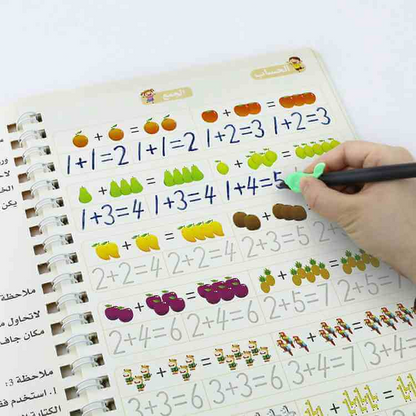 الحساب
الجمع
+ = + =
1+1=2 1+1=2 1+2=3 1+2=3
+ = + =
1+3=4 1+3=4 1+4=5
+ =
2+2=4 2+2=4 2+3=5 2
+ = + =
2+4=6 2+4=6 2+5=7 2+5
+ = + =
3+3=6 3+3=6 3+4=7 3+4
يكن
ملاحظة
لاتحاول
مكان جاف
ملاحظة 3:
1. استخدم فق
الكتابة